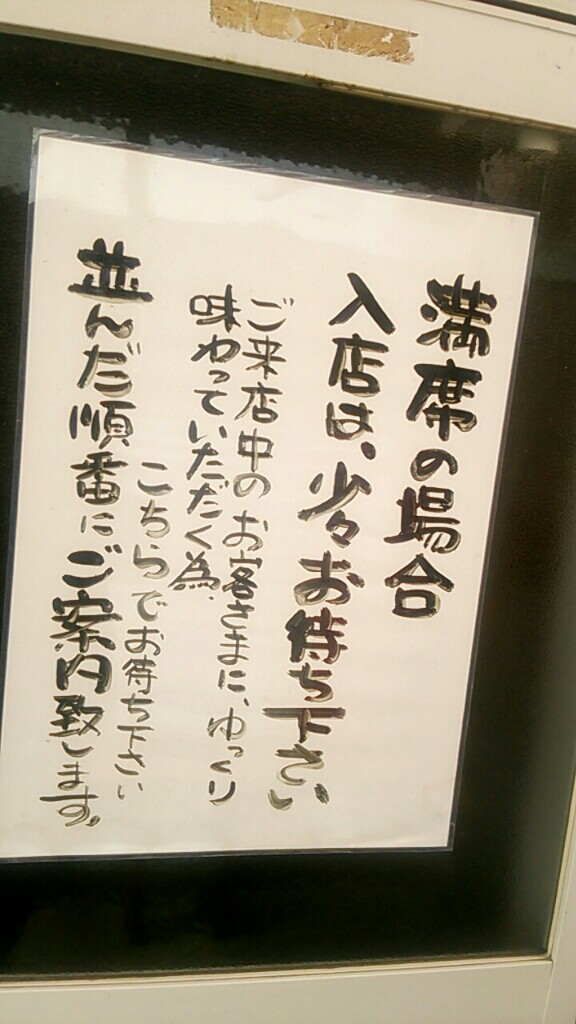 満席の場合
入店は、少々お待ち下さい
ご来店中のお客さまに、ゆっくり
味わっていただく為、
こちらでお待ち下さい
並んだ順番にご案内致します。